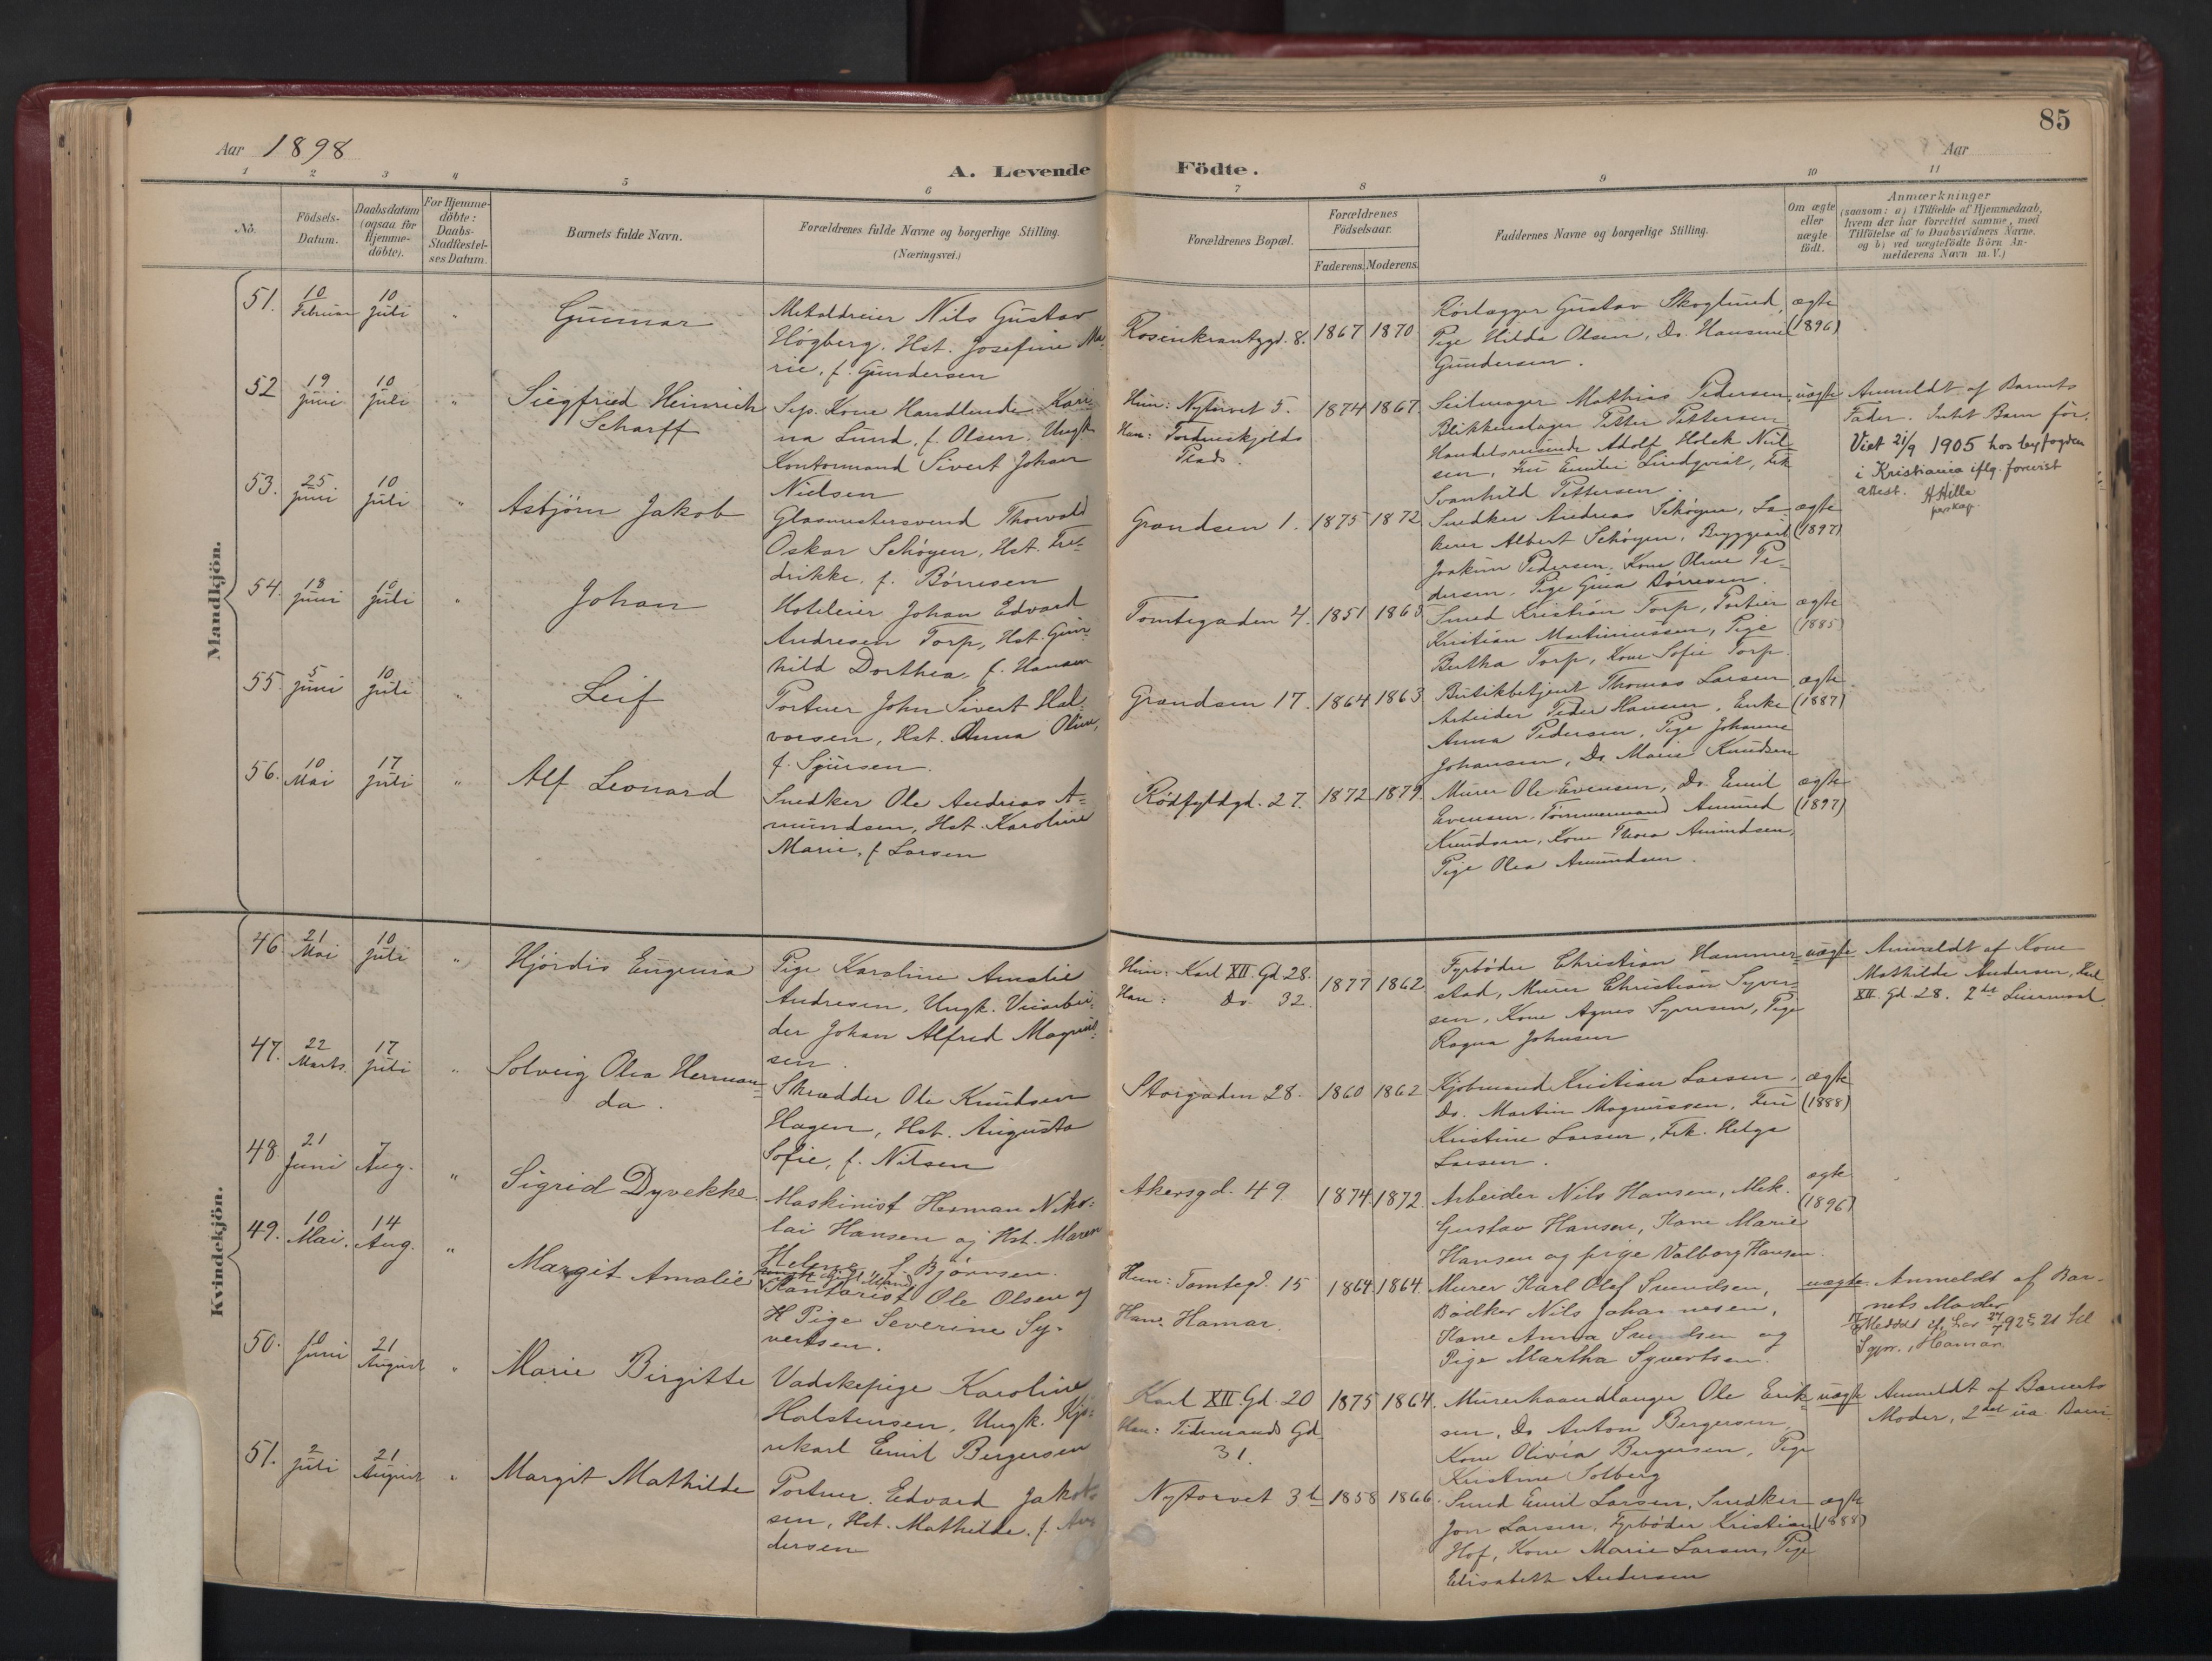 85
Aar 1898
Aar
A. Levende Födte.
1 2 3 4 5 6 7 8 9 10 11
No.
Födsels-
Datum.
Daabsdatum
(ogsaa for
Hjemme-
döbte).
For Hjemme-
döbte:
Daabs-
Stadfæstel-
ses Datum.
Barnets fulde Navn.
Forældrenes fulde Navne og borgerlige Stilling.
(Næringsvei.)
Forældrenes Bopæl.
Forældrenes
Födselsaar.
Faderens. Moderens.
Faddernes Navne og borgerlige Stilling.
Om ægte
eller
uægte
födt.
Anmærkninger
(saasom: a) i Tilfælde af Hjemmedaab,
hvem der har forrettet samme, med
Tilföielse af to Daabsvidners Navne,
og b) ved uægtefödte Börn An-
melderens Navn m. V.)
Mandkjön.
51.
10
Februar
10
Juli
"
Gunnar
Metaldreier Nils Gustav
Högberg. Hst. Josefine Ma-
rie, f. Gundersen
Rosenkrantzgd. 8.
1867
1870
Rörlægger Gustav Skoglund,
Pige Hilda Olsen, Do. Hansine
Gundersen.
ægte
(1896)
52
19
Juni
10
Juli
"
Siegfried Heinrich
Scharff
Sep. Kone Handlende Kari-
na Lund, f. Olsen. Ungk.
Kontormand Sivert Johan
Nielsen
Hun: Nytorvet 5.
Han: Tordenskjolds
Plads.
1874
1867.
Seilmager Mathias Pedersen,
Blikkenslager Petter Pettersen
Handelsreisende Adolf Holck Niel-
sen, Fru Emilie Lindqvist, Frk
Svanhild Pettersen.
uægte
Anmeldt af Barnets
Fader. Intet Barn før.
Viet 21/9 1905 hos byfogden
i Kristiania iflg. forevist
attest. H Hille
53.
25
Juni
10
Juli
"
Asbjörn Jakob
Glasmestersvend Thorvald
Oskar Schöyen, Hst. Fre-
drikke, f. Börresen
Grændsen 1.
1875
1872
Snedker Andreas Schöyen, La-
kerer Albert Schöyen, Bryggeiarb
Joakim Pedersen, Kone Oline Pe-
dersen, Pige Gina Börresen.
ægte
(1897)
54.
18
Juni
10
Juli
"
Johan
Hoteleier Johan Edvard
Andresen Torp, Hst. Gun-
hild Dorthea, f. Hansen
Tomtegaden 4.
1851
1865
Smed Kristian Torp, Portier
Kristian Martiniussen, Pige
Bertha Torp, Kone Sofie Torp.
ægte
(1885)
55.
5
Juni
10
Juli
"
Leif
Portner John Sivert Hal-
vorsen, Hst. Anna Oline,
f. Sjursen.
Grændsen 17.
1864
1863
Butikbetjent Thomas Larsen
Arbeider Peder Hansen, Enke
Anna Pedersen, Pige Johanne
Johansen, Do. Marie Knudsen
ægte
(1887)
56.
10
Mai
17
Juli
"
Alf Leonard
Snedker Ole Andreas A-
mundsen, Hst. Karoline
Marie, f. Larsen
Rødfyldgd. 27.
1872
1879
Murer Ole Evensen, Do. Emil
Evensen, Tömmermand Amund
Knudsen, Kone Thora Amundsen,
Pige Olea Amundsen.
ægte
(1897)
Kvindekjön.
46.
21
Mai
10
Juli
"
Hjördis Eugenia
Pige Karoline Amalie
Andresen, Ungk. Veiarbei-
der Johan Alfred Magnus-
sen.
Hun: Karl XII. Gd. 28.
Han: Do. 32.
1877
1862
Fyrböder Christian Hammer-
stad, Murer Christian Syver-
sen, Kone Agnes Syversen, Pige
Ragna Johnsen
uægte
Anmeldt af Kone
Mathilde Andersen, Karl
XII. Gd. 28. 2det Leiermaal.
47.
22
Marts.
17
Juli
"
Solveig Olea Herman-
da.
Skrædder Ole Knudsen
Hagen, Hst. Augusta
Sofie, f. Nilsen
Storgaden 28.
1860
1862
Kjöbmand Kristian Larsen,
Do. Martin Magnussen, Fru
Kristine Larsen, Frk. Helga
Larsen.
ægte
(1888)
48.
21
Juni
7
Aug.
"
Sigrid Dyvekke
Maskinist Herman Niko-
lai Hansen og Hst. Maren
Helene f. Bjørnsen.
Akersgd. 49
1874
1872.
Arbeider Nils Hansen, Mek.
Gustav Hansen, Kone Marie
Hansen og pige Valborg Hansen.
ægte
(1896)
49.
10
Mai.
14
Aug.
"
Margit Amalie
Kontorist Ole Olsen og
Pige Severine Sy-
vertsen.
Hun: Tomtegd. 15
Han: Hamar.
1864
1864.
Murer Karl Olef Svendsen,
Bødker Nils Johannesen,
Kone Anna Svendsen og
Pige Martha Syvertsen.
uægte.
Anmeldt af Bar-
nets Moder
50.
10
Juni
21
August
"
Marie Birgitte
Vadskepige Karoline
Halstensen, Ungk. Kjö-
rekarl Emil Bergersen
Karl XII. Gd. 20
Han: Tidemands Gd.
31.
1875
1864.
Murerhaandlanger Ole Erik-
sen, Do Anton Bergersen,
Kone Olivia Bergersen, Pige
Kristine Solberg
uægte
Anmeldt af Barnets
Moder, 2det ua. Barn.
51.
2
Juli
21
August
"
Margit Mathilde
Portner Edvard Jakob-
sen, Hst. Mathilde, f. An-
dersen
Nytorvet 3 b
1858
1866.
Smed Emil Larsen, Snedker
Jon Larsen, Fyrböder Kristian
Hof, Kone Marie Larsen, Pige
Elisabeth Andersen
ægte
(1888)